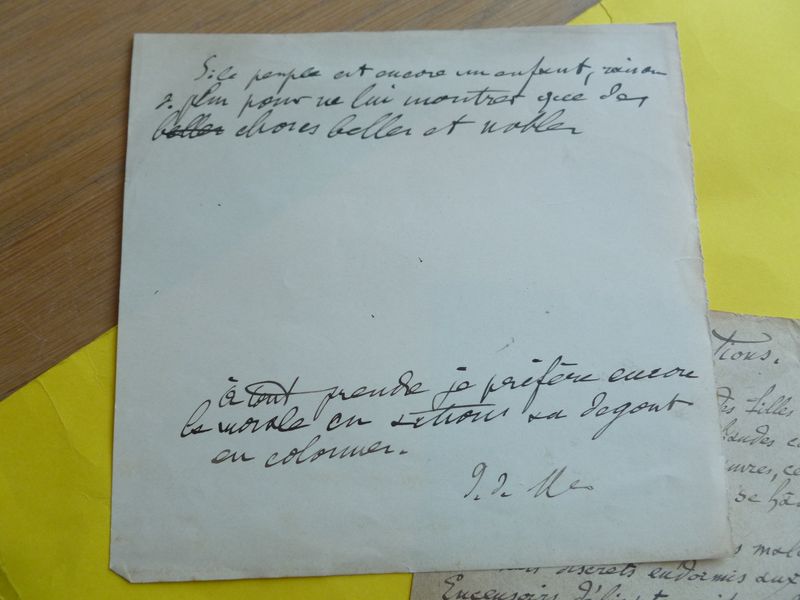 Si le peuple est encore un enfant, raison
de plus pour ne lui montrer que des
belles choses belles et nobles
à tout prendre je préfère encore
la morale en actions au dégout
en colonnes.
tions.
des filles
se hâ
discrets endormis aux
Encensoirs